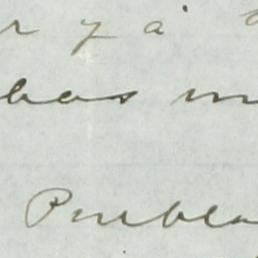 r y á
bas m
Puebla